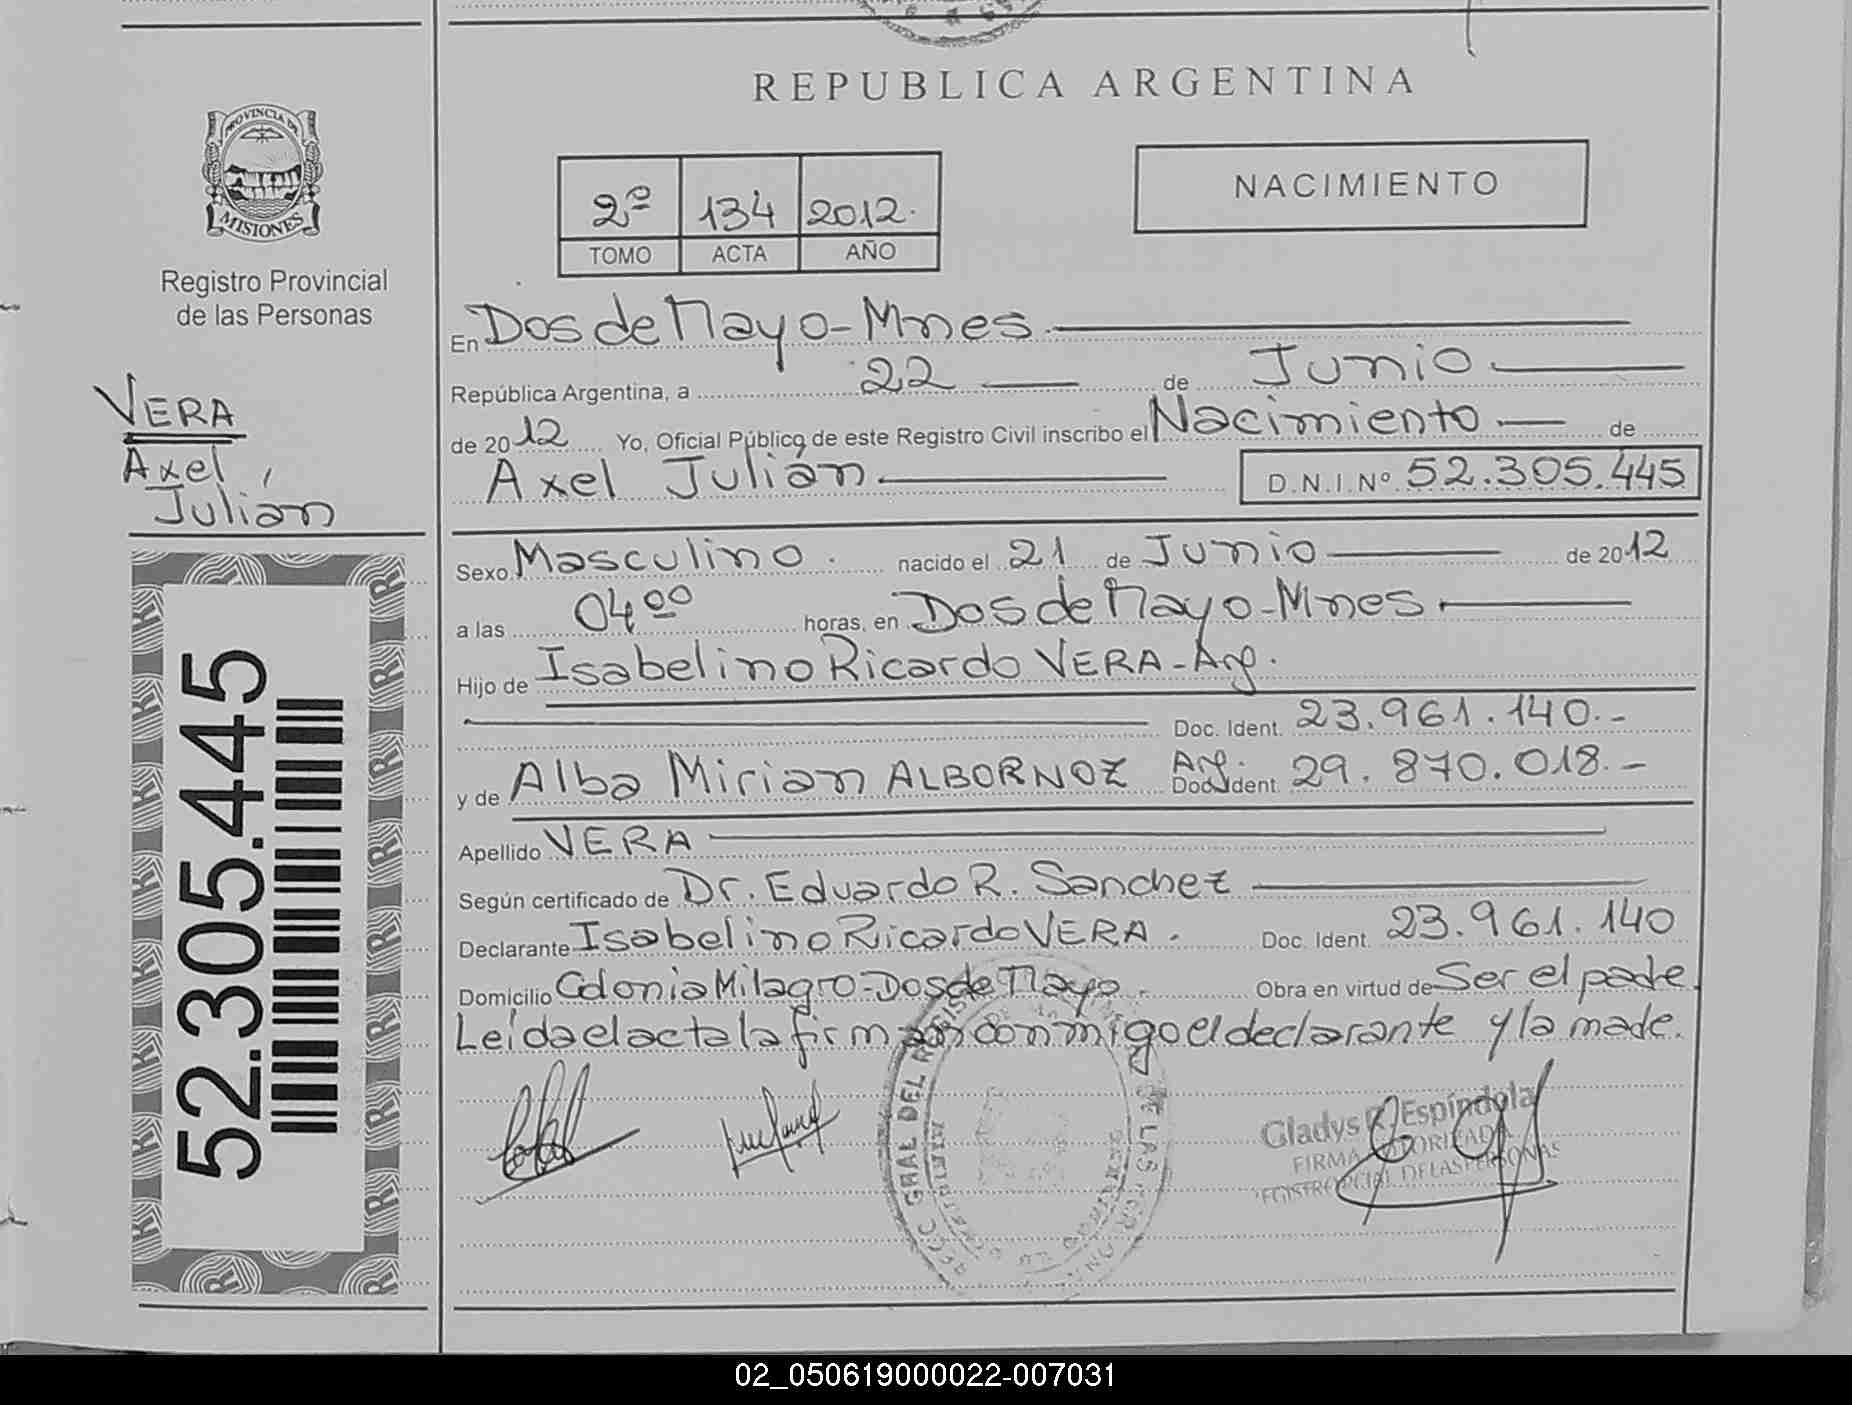 REPUBLICA ARGENTINA
PROVINCIA DE
MISIONES
Registro Provincial
de las Personas
NACIMIENTO
2º 134 2012.
TOMO ACTA AÑO
VERA
Axel
Julián
52.305.445
En Dos de Mayo-Mnes.
República Argentina, a 22 de Junio
de 2012 Yo, Oficial Público de este Registro Civil inscribo el Nacimiento de
Axel Julián D.N.I.Nº 52.305.445
Sexo Masculino. nacido el 21 de Junio de 2012
a las 04 00 horas, en Dos de Mayo-Mnes
Hijo de Isabelino Ricardo VERA-Arg.
Doc. Ident. 23.961.140.-
y de Alba Mirian ALBORNOZ Arg. Doc. Ident. 29.870.018.-
Apellido VERA
Según certificado de Dr. Eduardo R. Sanchez
Declarante Isabelino Ricardo VERA. Doc. Ident. 23.961.140
Domicilio Colonia Milagro-Dos de Mayo. Obra en virtud de Ser el padre.
Leída el acta la firman conmigo el declarante y la madre.
GRAL DEL
DE LAS
Gladys R. Espíndola
FIRMA AUTORIZADA
REGISTRO PCIAL DE LAS PERSONAS
02_050619000022-007031